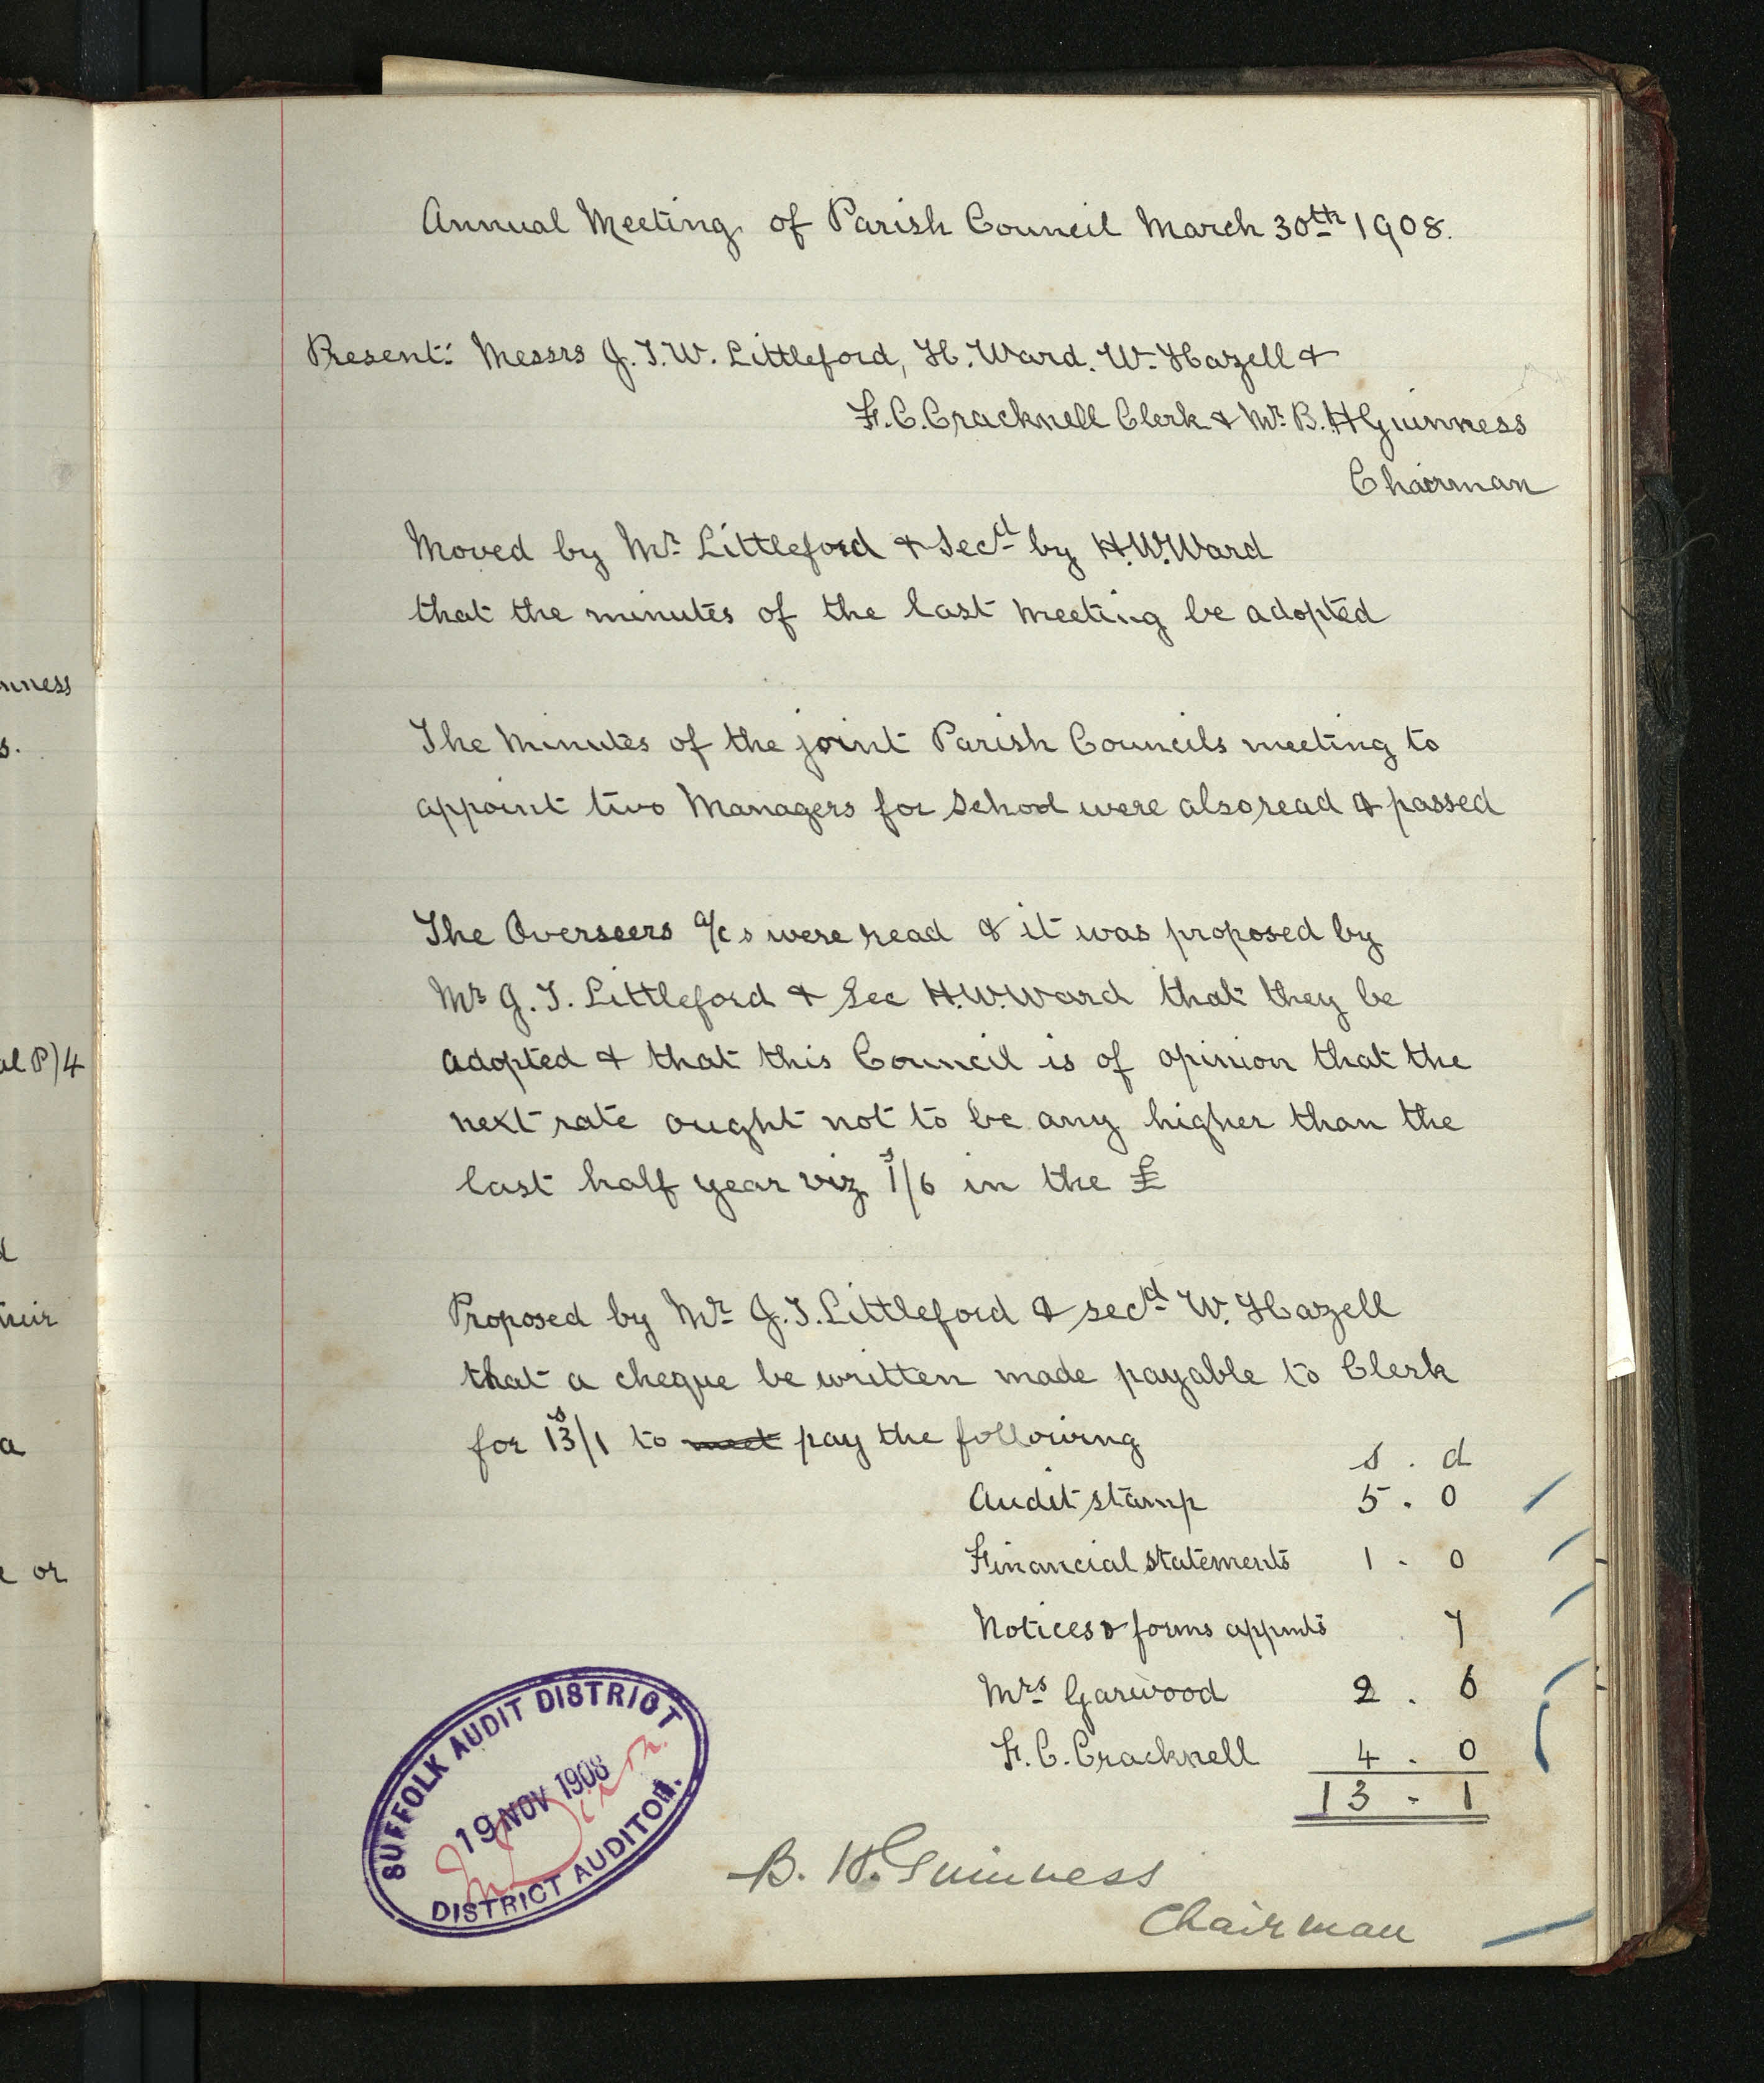 Annual Meeting of Parish Council March 30th 1908.
Present: Messrs J. T. W. Littleford, H. Ward. W. Hazell &
F. C. Cracknell Clerk & Mr. B. H Guinness
Chairman
Moved by Mr. Littleford & Secd by H.W.Ward
that the minutes of the last meeting be adopted
The Minutes of the joint Parish Councils meeting to
appoint two Managers for School were also read & passed
The Overseers a/cs were read & it was proposed by
Mr J. T. Littleford & Sec H.W.Ward that they be
adopted & that this Council is of opinion that the
next rate ought not to be any higher than the
last half year viz 1s/6 in the £
Proposed by Mr. J. T. Littleford & secd W. Hazell
that a cheque be written made payable to Clerk
for 13s/1 to meet pay the following
s . d
Audit stamp 5 . 0
Financial statements 1 - 0
Notices & forms appmts 7
Mrs Garwood 2 . 6
F. C. Cracknell 4 . 0
13 - 1
B. H. Guinness
Chairman
SUFFOLK AUDIT DISTRICT
19 NOV 1908
DISTRICT AUDITOR.
nness
s.
al P)4
d
their
a
e or